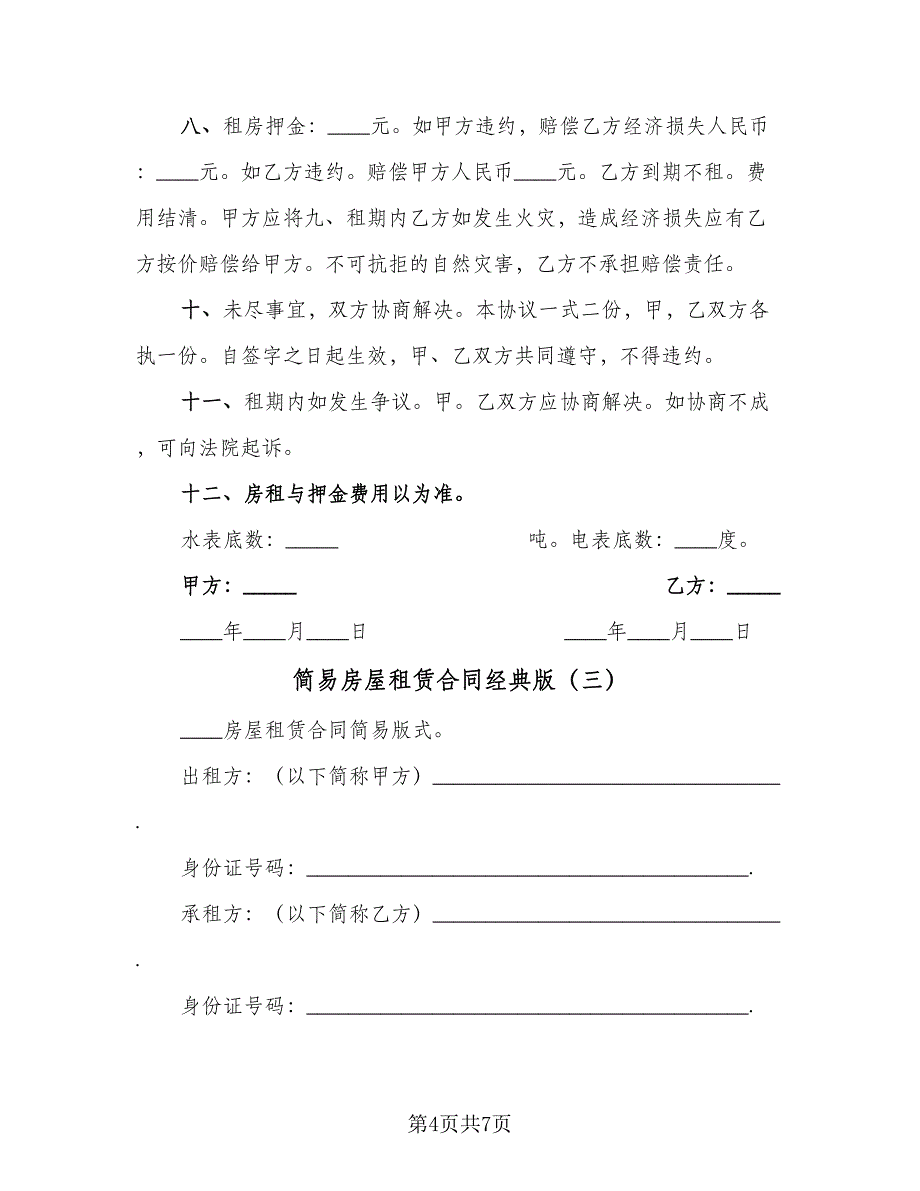 八、租房押金：____元。如甲方违约，赔偿乙方经济损失人民币
：____元。如乙方违约。赔偿甲方人民币____元。乙方到期不租。费
用结清。甲方应将九、租期内乙方如发生火灾，造成经济损失应有乙
方按价赔偿给甲方。不可抗拒的自然灾害，乙方不承担赔偿责任。
十、未尽事宜，双方协商解决。本协议一式二份，甲，乙双方各
执一份。自签字之日起生效，甲、乙双方共同遵守，不得违约。
十一、租期内如发生争议。甲。乙双方应协商解决。如协商不成
，可向法院起诉。
十二、房租与押金费用以为准。
水表底数：_____ 吨。电表底数：____度。
甲方：_____ 乙方：_____
____年____月____日 ____年____月____日
简易房屋租赁合同经典版（三）
____房屋租赁合同简易版式。
出租方：（以下简称甲方）_________________________________
.
身份证号码：__________________________________________.
承租方：（以下简称乙方）_________________________________
.
身份证号码：__________________________________________.
第4页共7页